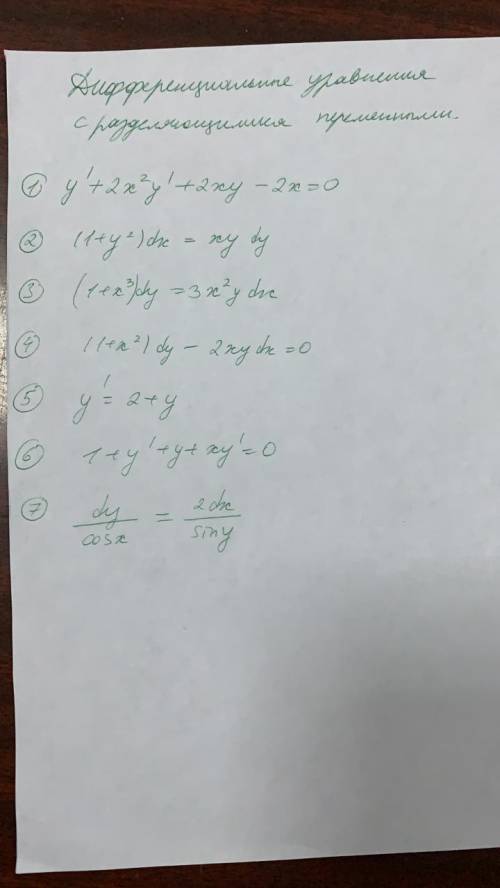 Дифференциальные уравнения
с разделяющимися переменными.
① y' + 2x²y' + 2xy − 2x = 0
② (1+y²)dx = xy dy
③ (1+x³)dy = 3x²y dx
④ (1+x²)dy − 2xy dx = 0
⑤ y' = 2+y
⑥ 1+y'+y+xy' = 0
⑦ dy/cosx = 2dx/siny